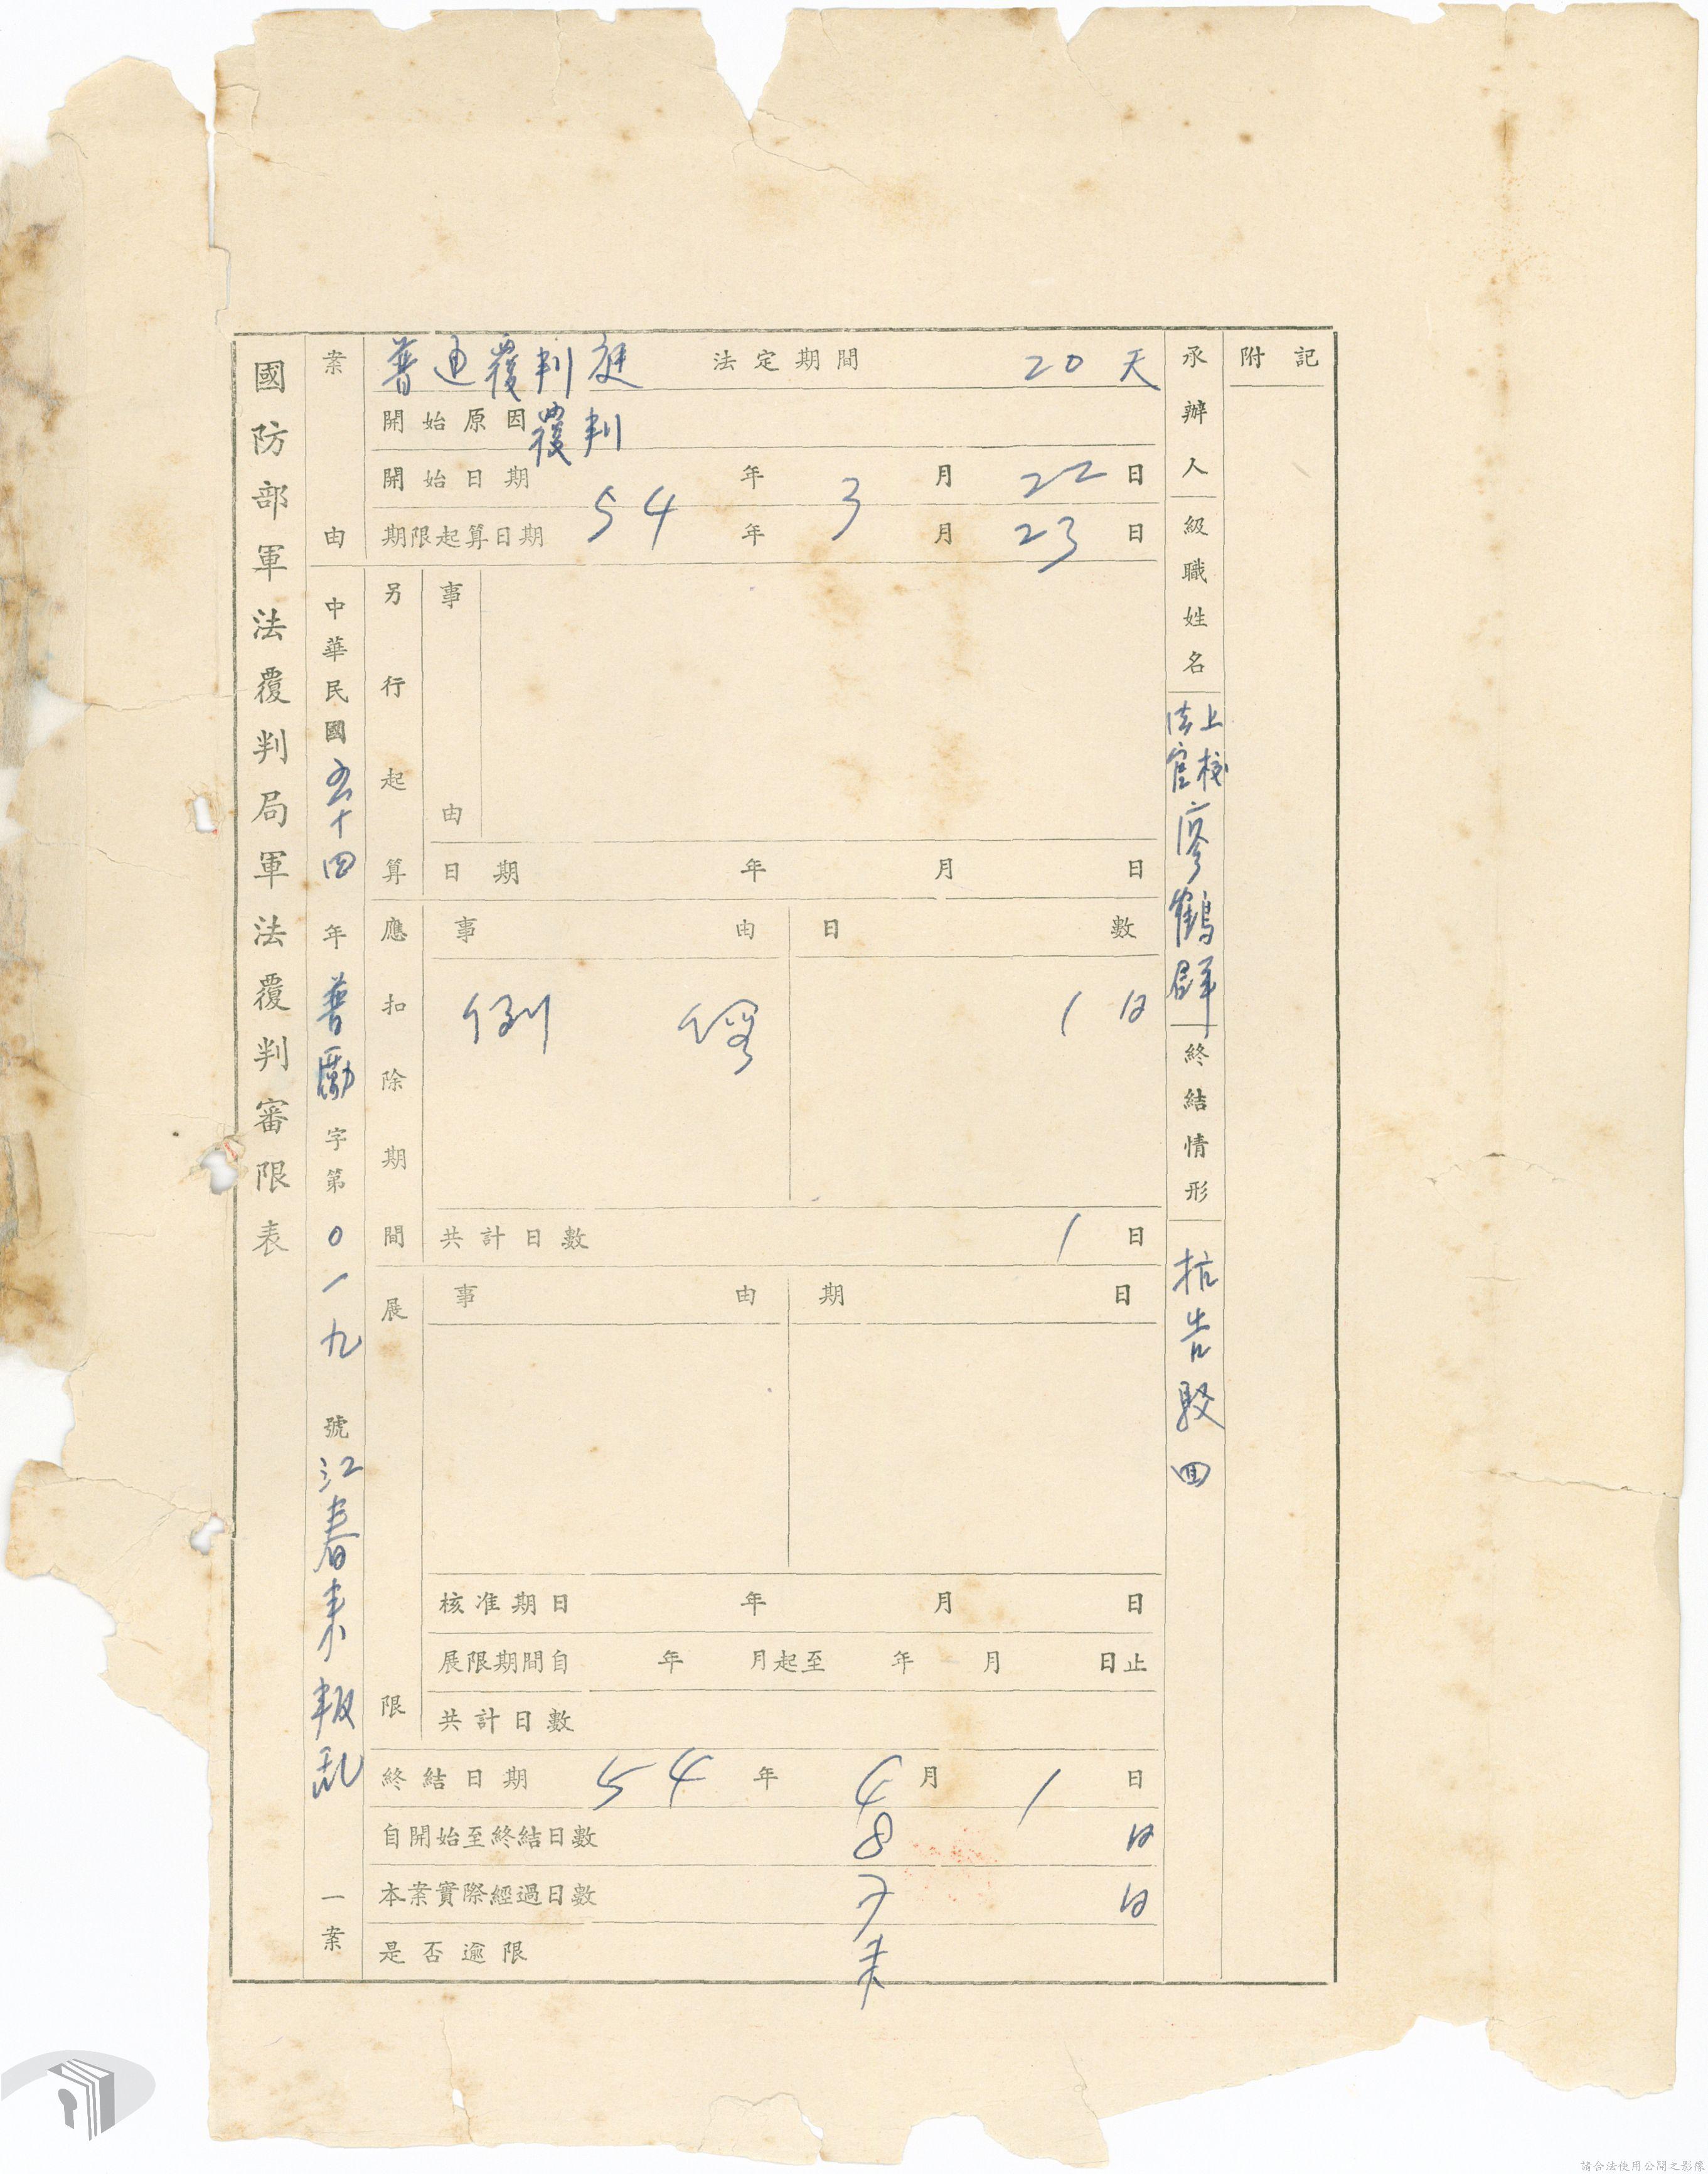 國防部軍法覆判局軍法覆判審限表
案由
普通覆判庭 法定期間 20天
開始原因 覆判
開始日期 54年3月22日
期限起算日期 54年3月23日
中華民國五十四年普勵字第0一九號江春来叛乱一案
另行起算
事由
日期 年 月 日
應扣除期間
事由 日數
例 1日
共計日數 1日
展限
事由 期日
核准期日 年 月 日
展限期間自 年 月起至 年 月 日止
共計日數
終結日期 54年4月1日
自開始至終結日數 8日
本案實際經過日數 7日
是否逾限 未
承辦人級職姓名
上校
法官
廖鶴群
終結情形
抗告駁回
附記
請合法使用公開之影像